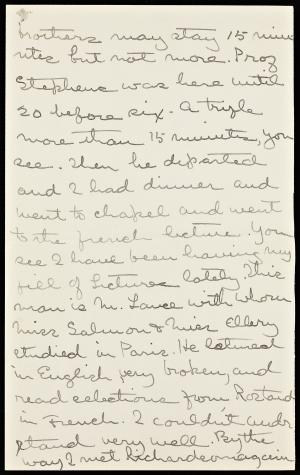 brothers may stay 15 min
utes but not more. Prof
Stephens was here until
20 before six. A trifle
more than 15 minutes, you
see. Then he departed
and I had dinner and
went to chapel and went
to the french lecture. You
see I have been having my
fill of lectures lately. This
man is M. with whom
Miss Salmon & Miss Ellery
studied in Paris. He lectured
in English very broken, and
read selections from Rostand
in French. I couldn't under
stand very well. By the
way, I met Richardson again